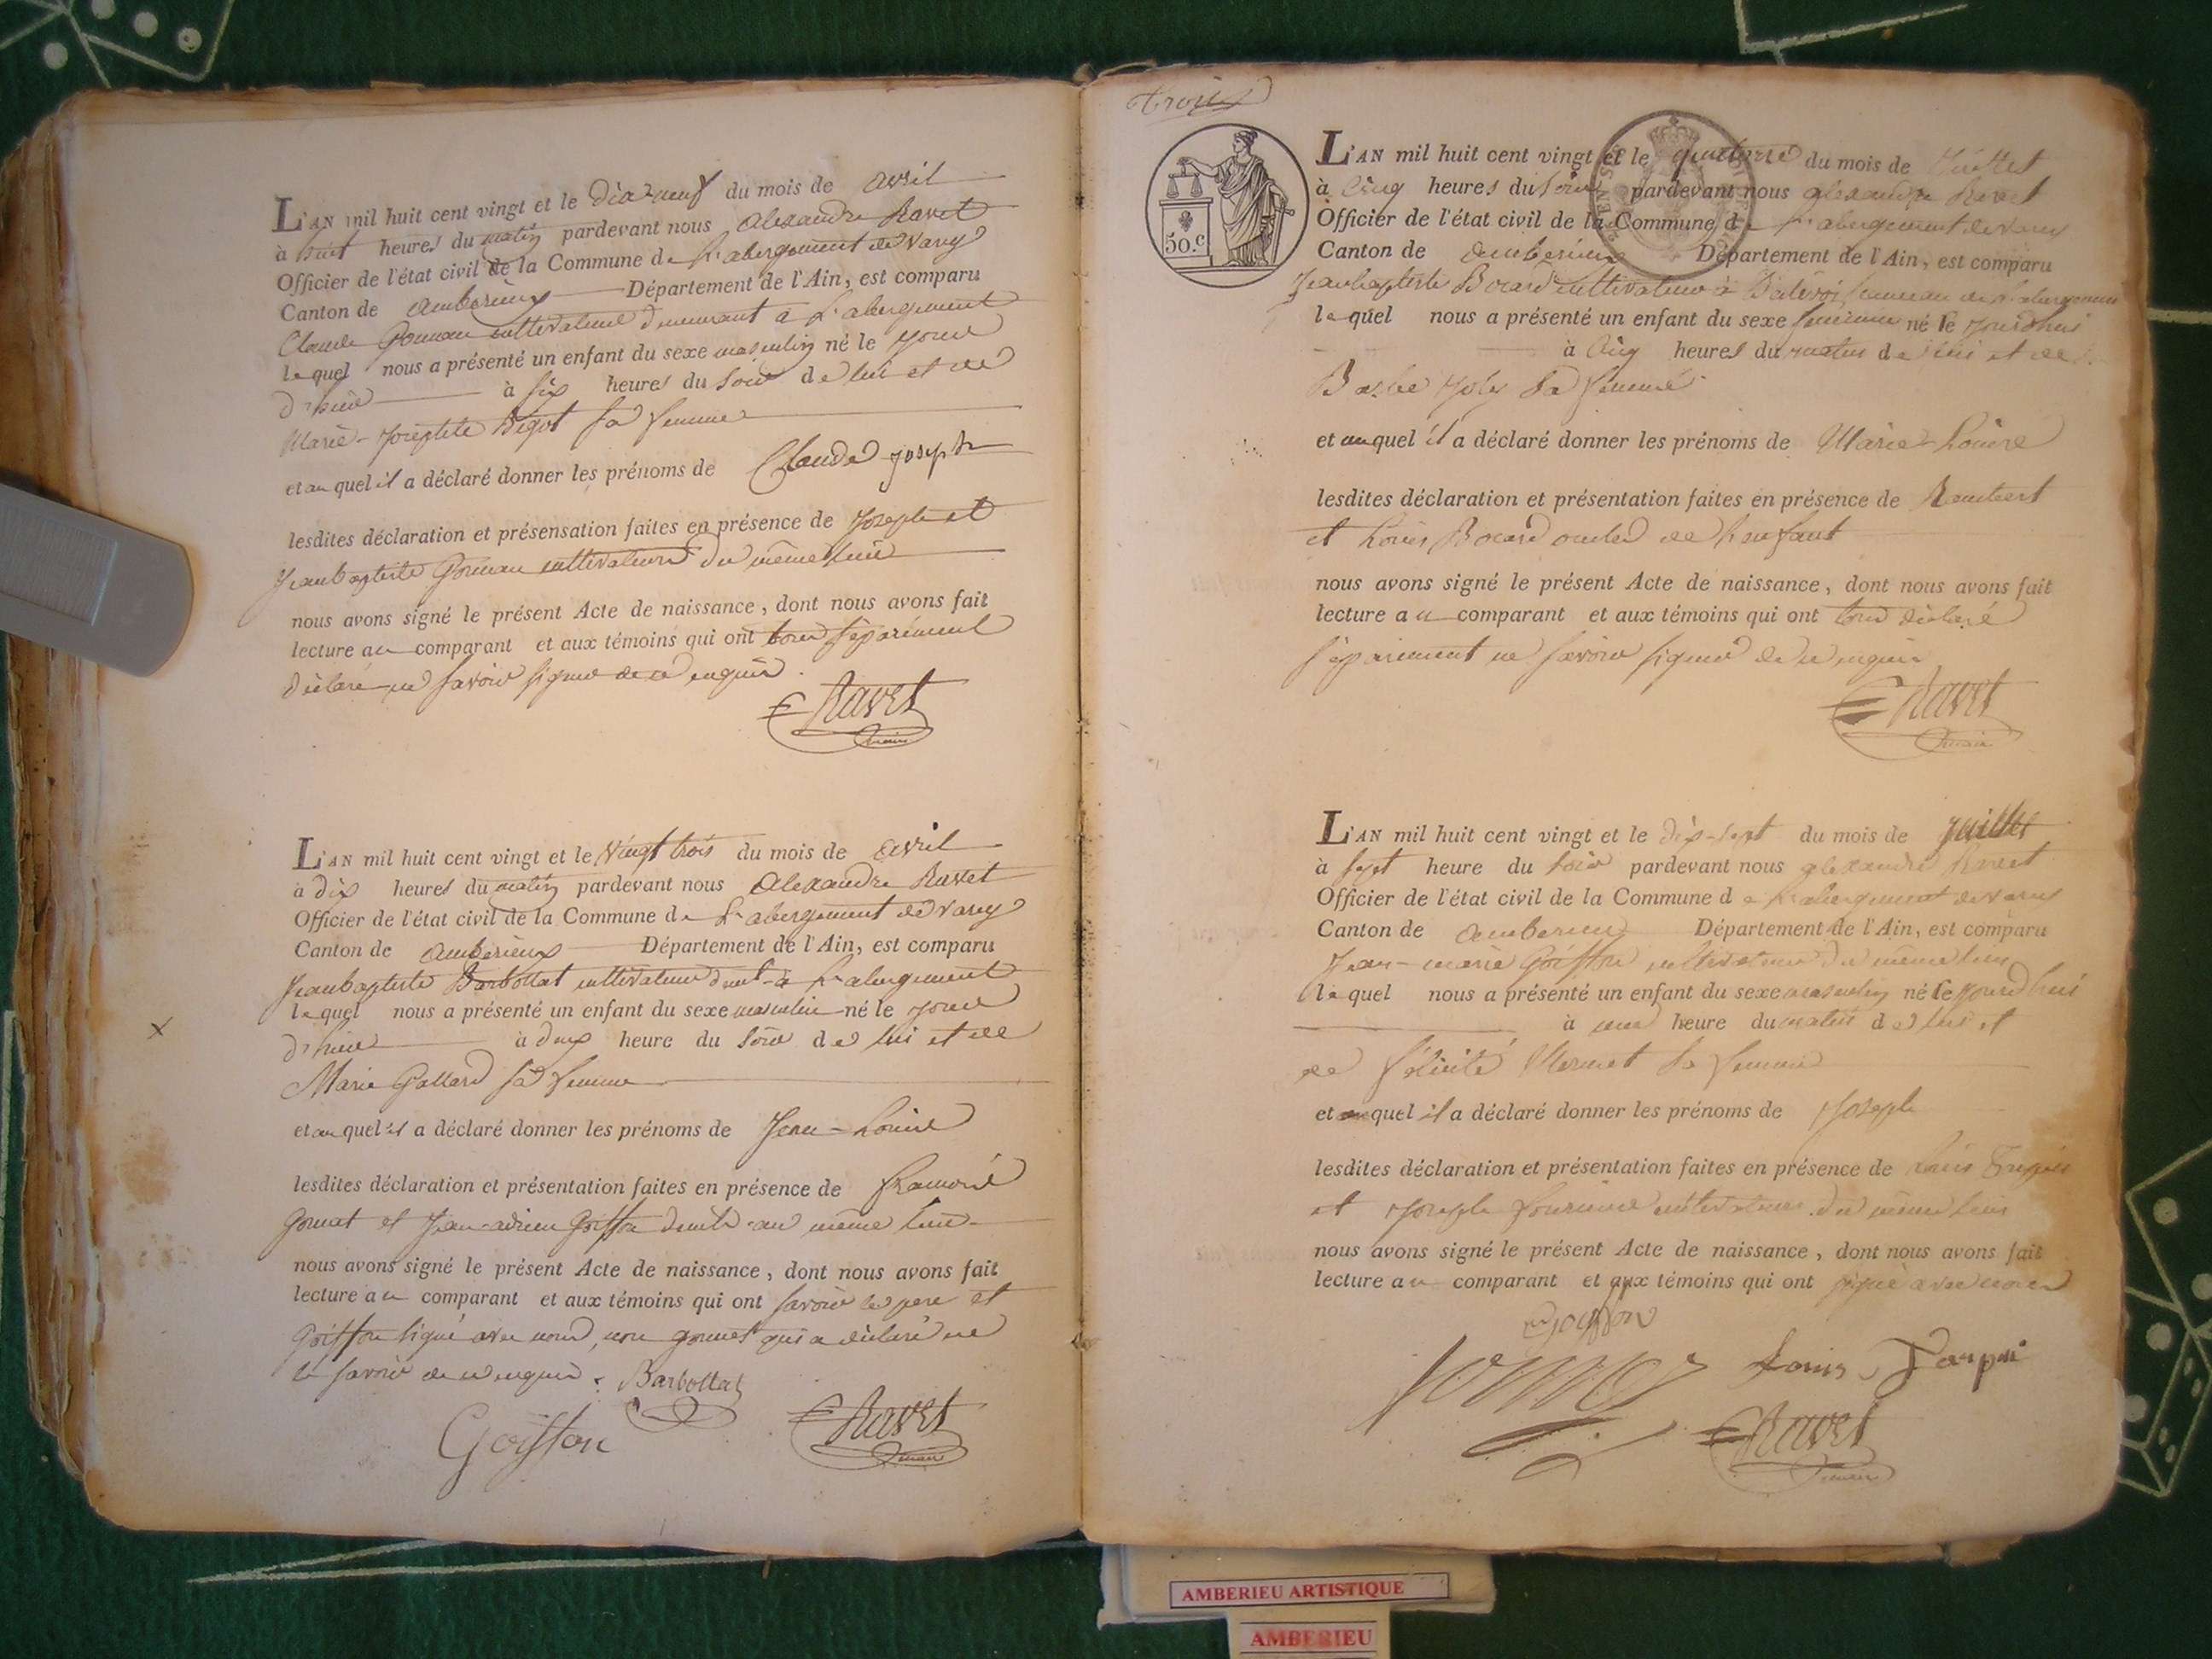 L'AN mil huit cent vingt et le dix neuf du mois de avril
à huit heures du matin pardevant nous alexandre Ravet
Officier de l'état civil de la Commune de L'abergement de Varey
Canton de amberieux Département de l'Ain, est comparu
Claude cultivateur demeurant à L'abergement
lequel nous a présenté un enfant du sexe masculin né le jour
d'hier à six heures du soir de lui et de
Marie-Josephte Bigot sa femme
et au quel il a déclaré donner les prénoms de Claude joseph
lesdites déclaration et présensation faites en présence de Joseph et
Jeanbaptiste cultivateurs du même lieu
nous avons signé le présent Acte de naissance, dont nous avons fait
lecture au comparant et aux témoins qui ont tous séparément
déclaré ne savoir signer de ce enquis.
Ravet
maire
L'AN mil huit cent vingt et le vingt trois du mois de avril
à dix heures du matin pardevant nous Alexandre Ravet
Officier de l'état civil de la Commune de L'abergement de Varey
Canton de amberieux Département de l'Ain, est comparu
Jeanbaptiste Barbollat cultivateur demt à L'abergement
lequel nous a présenté un enfant du sexe masculin né le jour
d'hier à deux heure du soir de lui et de
Marie Gallard sa femme
et au quel il a déclaré donner les prénoms de Jean-Louis
lesdites déclaration et présentation faites en présence de
et Jean-adrien Goiffon demts au même lieu
nous avons signé le présent Acte de naissance, dont nous avons fait
lecture au comparant et aux témoins qui ont savoir le pere et
Goiffon signé avec nous, non qui a déclaré ne
le savoir de ce enquis. Barbollat
Goiffon Ravet
maire
trois
50.c
L'AN mil huit cent vingt et le quatorze du mois de Juillet
à cinq heures du soir pardevant nous alexandre Ravet
Officier de l'état civil de la Commune de L'abergement de Varey
Canton de amberieux Département de l'Ain, est comparu
Jeanbaptiste Bocard cultivateur à hameau de L'abergement
lequel nous a présenté un enfant du sexe feminin né le jourd'hui
à cinq heures du matin de lui et de
Barbe Joly sa femme
et auquel il a déclaré donner les prénoms de Marie-Louise
lesdites déclaration et présentation faites en présence de Rambert
et Louis Bocard oncles de L'enfant
nous avons signé le présent Acte de naissance, dont nous avons fait
lecture au comparant et aux témoins qui ont tous déclaré
séparément ne savoir signer de ce enquis
Ravet
maire
L'AN mil huit cent vingt et le dix-sept du mois de juillet
à sept heure du soir pardevant nous alexandre Ravet
Officier de l'état civil de la Commune de L'abergement de Varey
Canton de amberieux Département de l'Ain, est comparu
Jean-marie Goiffon cultivateur du même lieu
lequel nous a présenté un enfant du sexe masculin né le jourd'hui
à une heure du matin de lui et
de félicité Mermet sa femme
et auquel il a déclaré donner les prénoms de Joseph
lesdites déclaration et présentation faites en présence de Louis
et Joseph cultivateurs du même lieu
nous avons signé le présent Acte de naissance, dont nous avons fait
lecture au comparant et aux témoins qui ont signé avec nous
Goiffon
Louis
Ravet
maire
AMBERIEU ARTISTIQUE
AMBERIEU